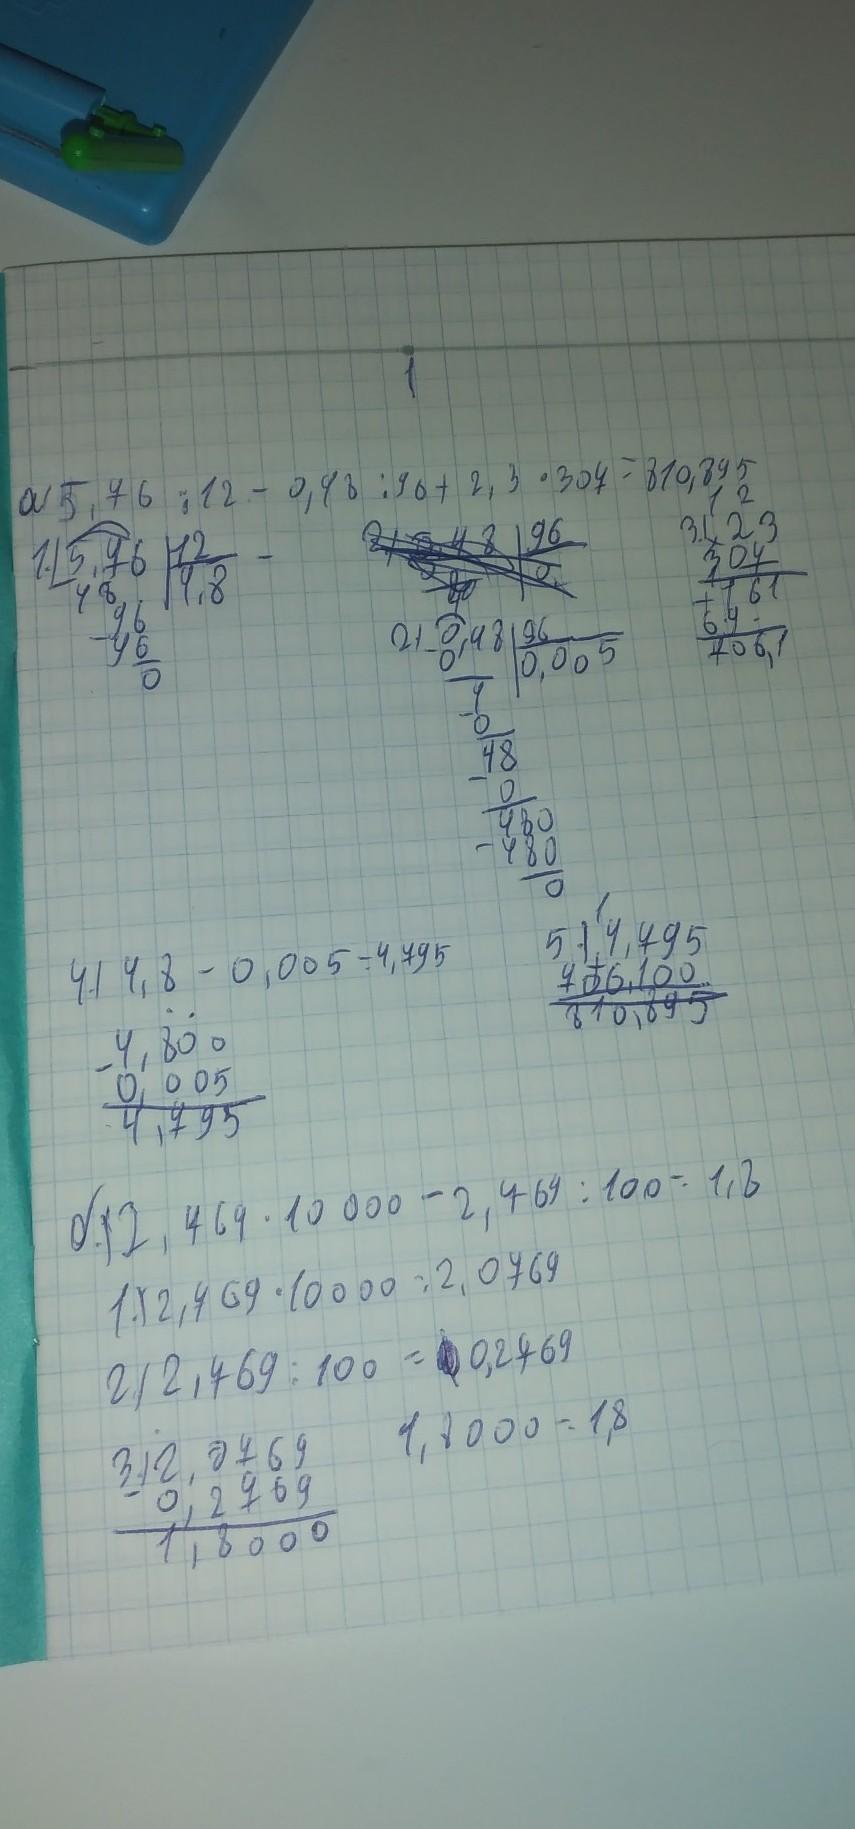 1
а) 5,76 : 12 - 0,48 : 96 + 2,3 · 307 = 810,895
1.) 5,76 | 12
48 | 4,8
96
- 96
0
96
0,
2) - 0,48 | 96
0 | 0,005
4
- 0
48
- 0
480
- 480
0
1 2
3.) 2,3
307
+ 161
69
706,1
4) 4,8 - 0,005 = 4,795
- 4,800
0,005
4,795
1
5.) 4,795
706,100
810,895
б.) 2,769 · 10 000 - 2,769 : 100 = 1,8
1.) 2,769 · 10000 = 2,0769
2) 2,769 : 100 = 0,2769
3.) 2,0769
- 0,2769
1,8000
1,8000 = 1,8